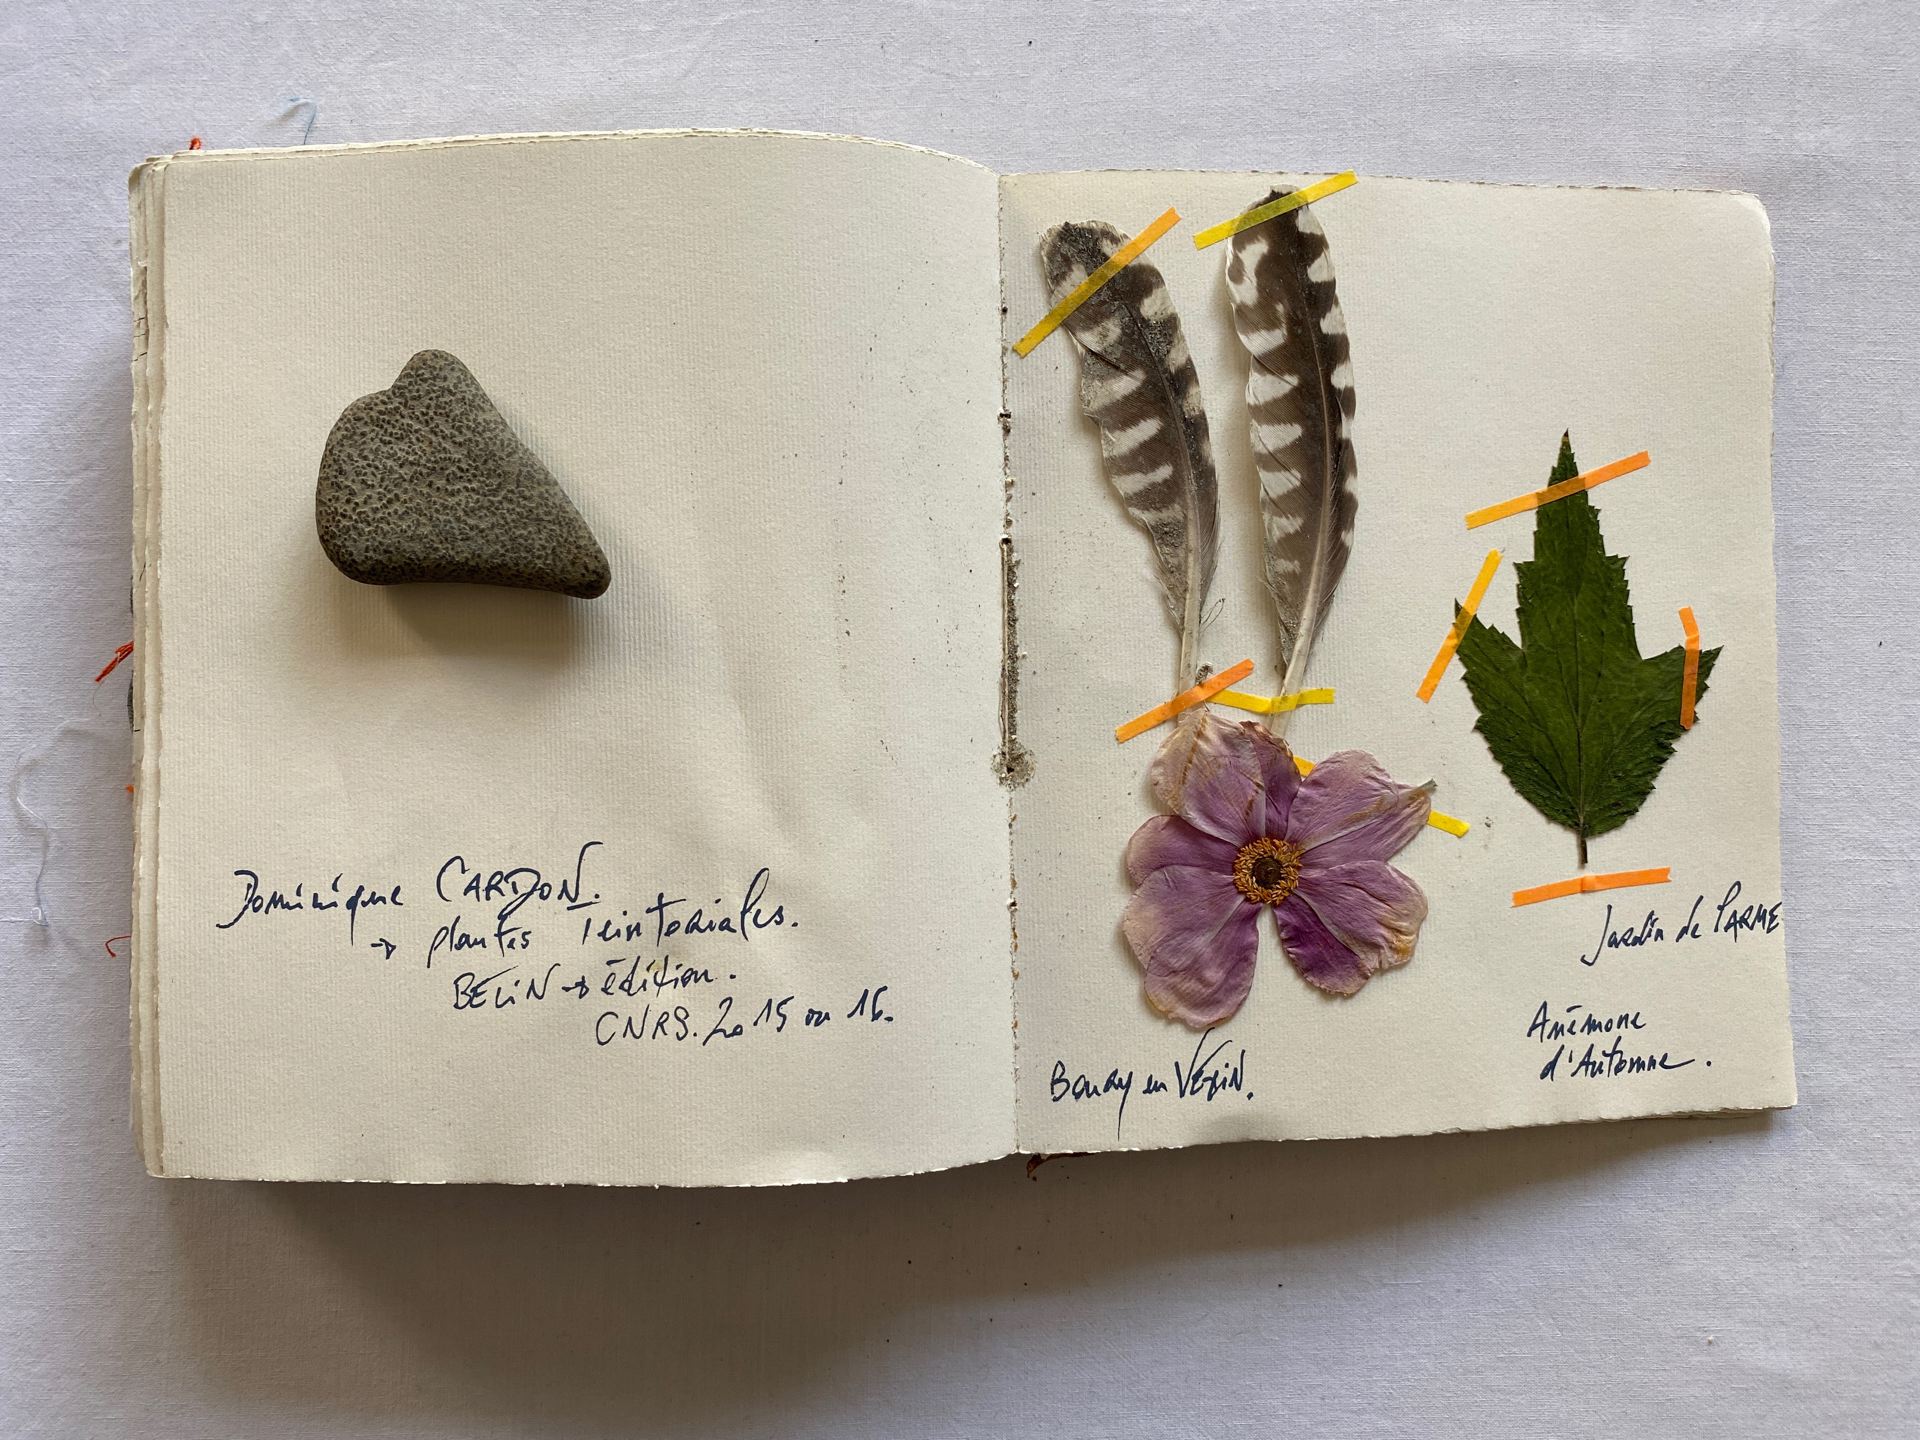 Dominique CARDON.
→ plantes teintoriales.
BELiN → édition.
CNRS. 2015 ou 16.
Boury en VEXiN.
Jardin de PARME
Anémone
d'Automne.